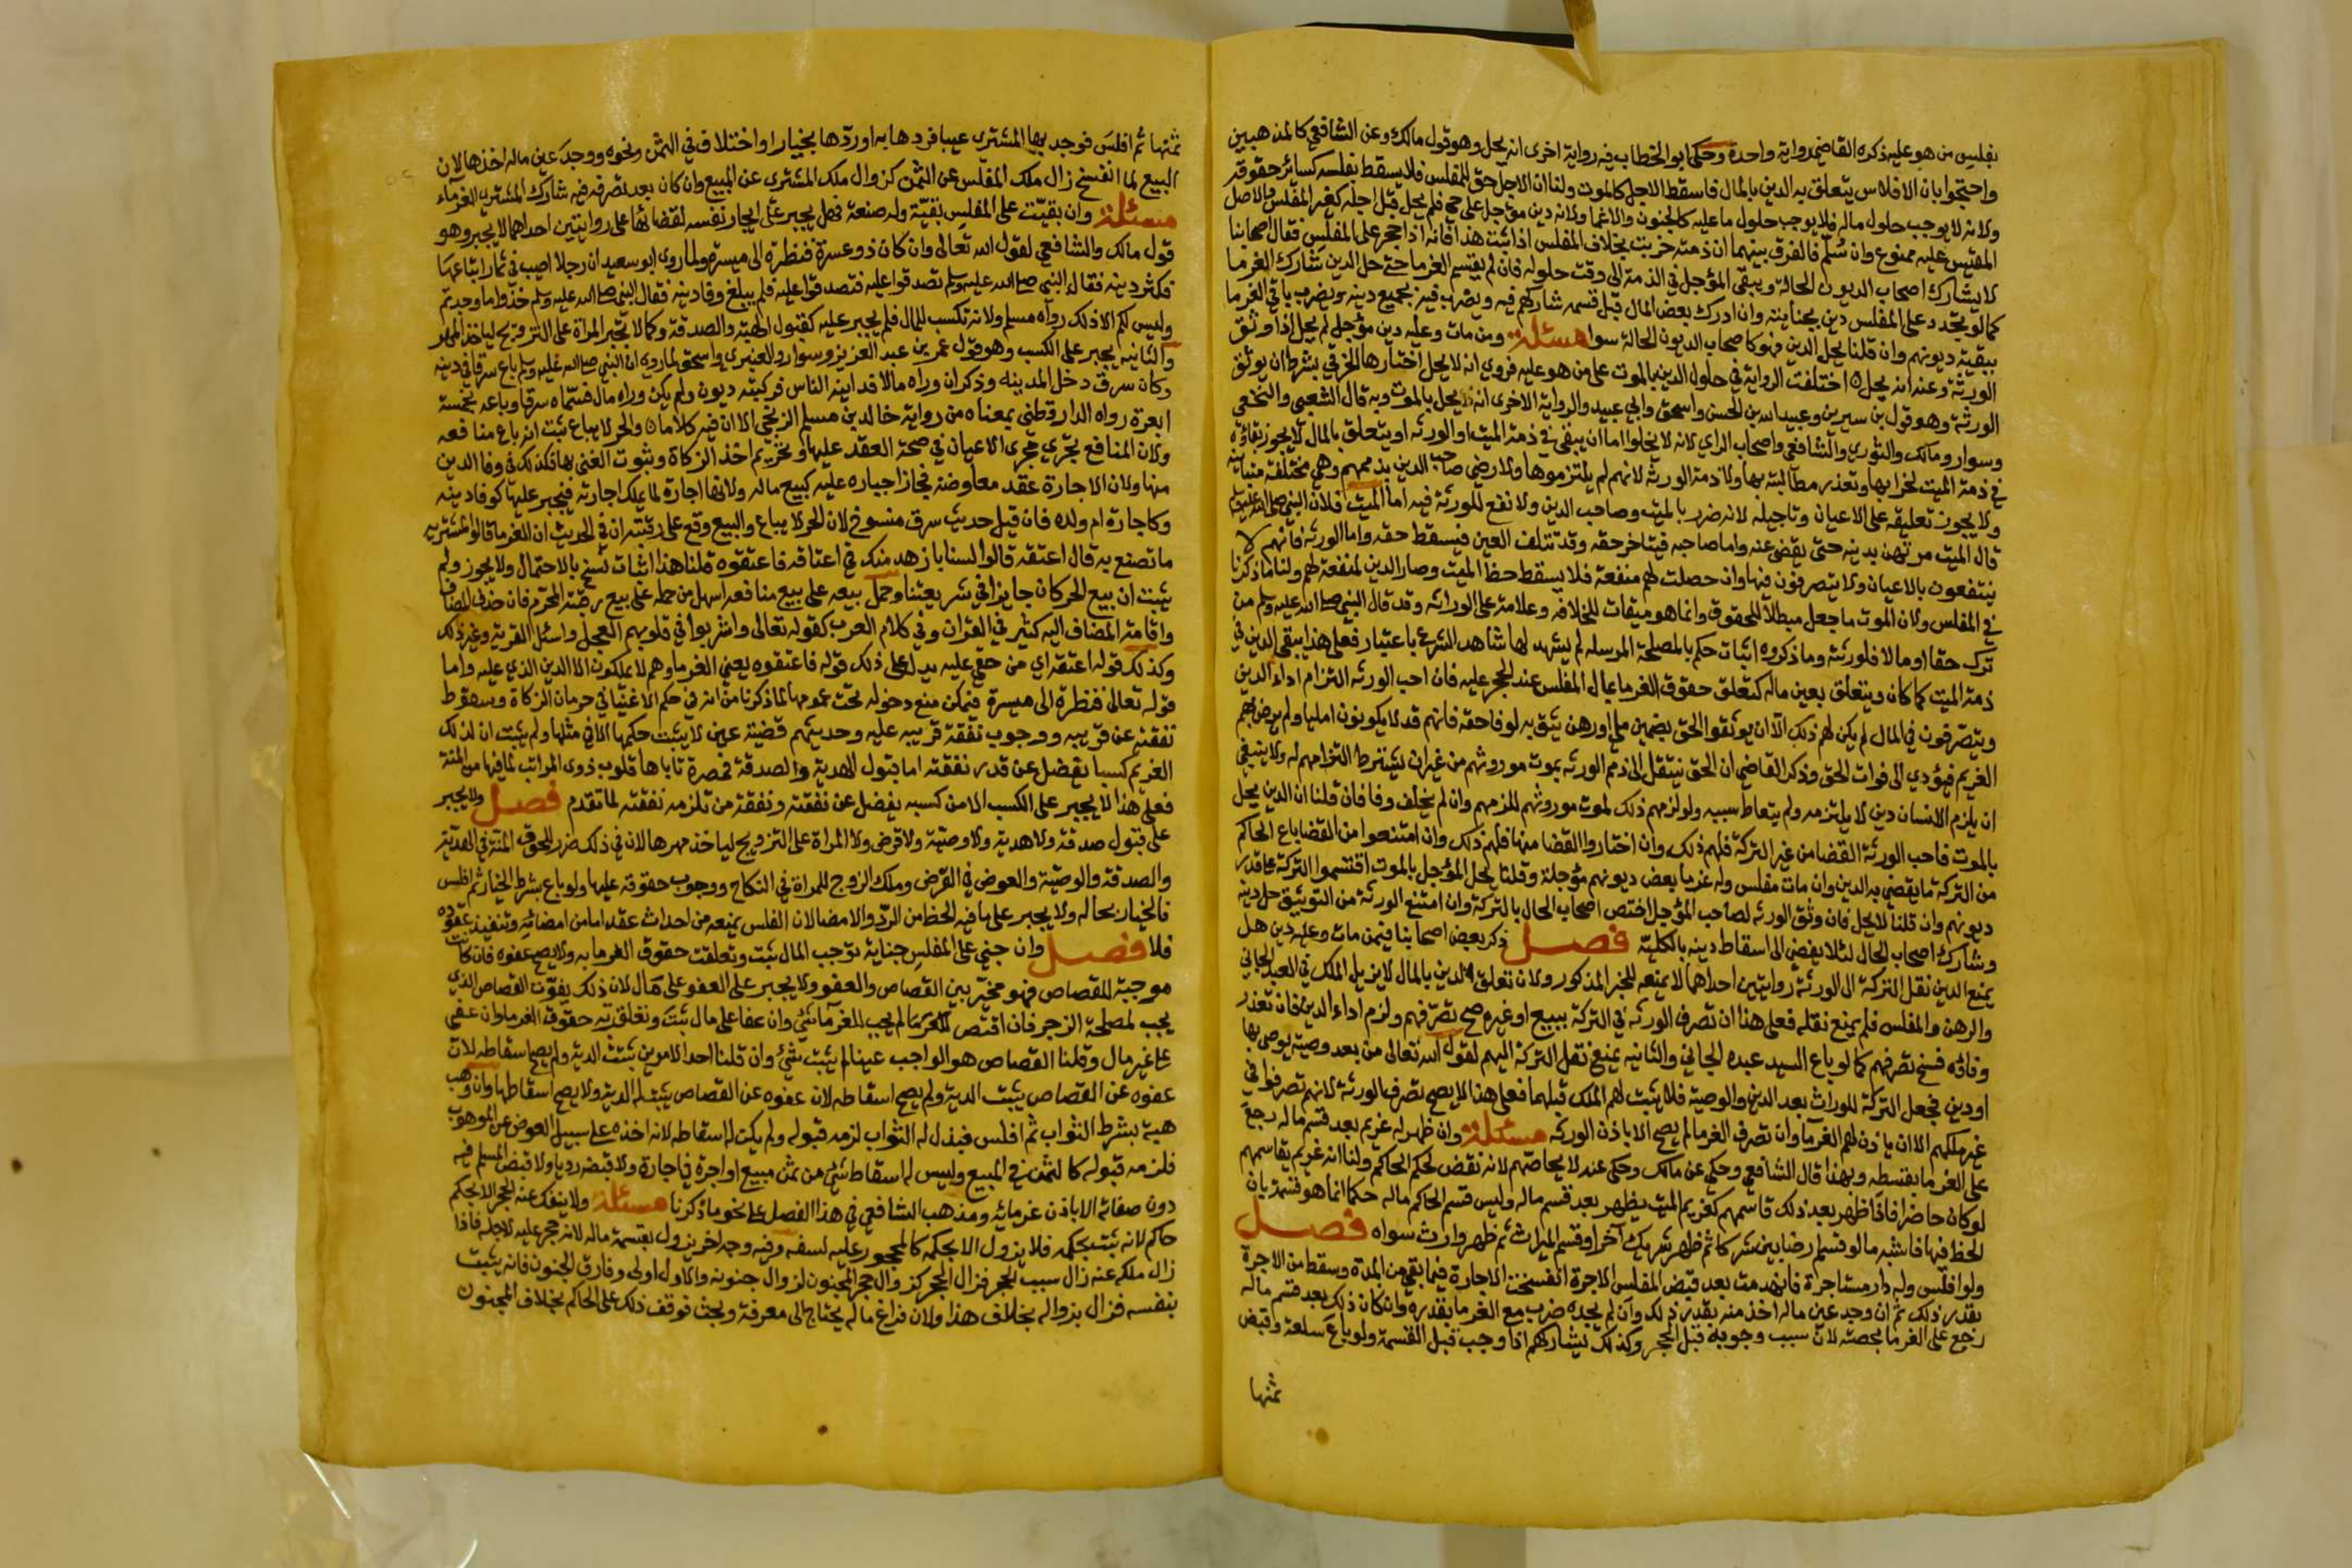 بفليس من هو عليه ذكره القاضي رواية واحدة وحكى ابو الخطاب فيه رواية اخرى انه يحل وهو قول مالك وعن الشافعي كالمذهبين
واحتجوا بان الافلاس يتعلق به الدين بالمال فاسقط الاجل كالموت ولنا ان الاجل حق للمفلس فلا يسقط بفلسه كسائر حقوقه
ولانه لا يوجب حلول ماله فلا يوجب حلول ما عليه كالجنون والاغما ولانه دين مؤجل على حي فلم يحل قبل اجله كغير المفلس والاصل
المقيس عليه ممنوع وان سُلّم فالفرق بينهما ان ذمته خربت بخلاف المفلس اذا ثبت هذا فانه اذا حجر على المفلس فقال اصحابنا
لا يشارك اصحاب الديون الحالة ويبقى المؤجل في الذمة الى وقت حلوله فان لم يقتسم الغرما حتى حل الدين شارك الغرما
كما لو تجدد على المفلس دين بجنايته وان ادرك بعض المال قبل قسمه شاركهم فيه ويضرب فيه بجميع دينه ويضرب باقي الغرما
ببقية ديونهم وان قلنا يحل الدين فهو كاصحاب الديون الحالة سوا مسئلة ومن مات وعليه دين مؤجل لم يحل اذا وثق
الورثة وعنه انه يحل اختلفت الرواية في حلول الدين بالموت على من هو عليه فروي انه لا يحل اختارها الخرقي بشرط ان يوثق
الورثة وهو قول بن سيرين وعبيد الله بن الحسن واسحق وابي عبيد والرواية الاخرى انه يحل بالموت وبه قال الشعبي والنخعي
وسوار ومالك والثوري والشافعي واصحاب الراي لانه لا يخلوا اما ان يبقى في ذمة الميت او الورثه او يتعلق بالمال لا يجوز بقاؤه
في ذمة الميت لخرابها وتعذر مطالبته بها ولا ذمة الورثة لانهم لم يلتزموها ولا رضي صاحب الدين بذممهم وهي مختلفة متباينه
ولا يجوز تعليقه على الاعيان وتاجيله لانه ضرر بالميت وصاحب الدين ولا نفع للورثة فيه اما الميت فلان النبي صلى الله عليه وسلم
قال الميت مرتهن بدينه حتى يقضى عنه واما صاحبه فيتاخر حقه وقد تتلف العين فيسقط حقه واما الورثه فانهم لا
ينتفعون بالاعيان ولا يتصرفون فيها وان حصلت لهم منفعة فلا يسقط حظ الميت وصار الدين لمنفعة لهم ولنا ما ذكرنا
في المفلس ولان الموت ما جعل مبطلا للحقوق وانما هو ميقات للخلافه وعلامة على الوراثه وقد قال النبي صلى الله عليه وسلم من
ترك حقا او مالا فلورثته وما ذكروه اثبات حكم بالمصلحة المرسله لم يشهد لها شاهد الشرع باعتبار فعلى هذا يبقى الدين في
ذمة الميت كما كان ويتعلق بعين ماله كتعلق حقوق الغرما بمال المفلس عند الحجر عليه فان احب الورثه التزام اداء الدين
ويتصرفون في المال لم يكن لهم ذلك الا ان يوثقوا الحق بضمين ملي او رهن يثق به لوفا حقه فانهم قد لا يكونون امليا ولم يرض بهم
الغريم فيؤدي الى فوات الحق وذكر القاضي ان الحق ينتقل الى ذمم الورثه بموت موروثهم من غير ان يشترط التزامهم له ولا ينبغي
ان يلزم الانسان دين لا يلتزمه ولم يتعاط سببه ولو لزمهم ذلك لموت موروثهم للزمهم وان لم يخلف وفا فان قلنا ان الدين يحل
بالموت فاحب الورثة القضا من غير التركة فلهم ذلك وان اختاروا القضا منها فلهم ذلك وان امتنعوا من القضا باع الحاكم
من التركة ما يقضي به الدين وان مات مفلس وله غرما بعض ديونهم مؤجلة وقلنا يحل المؤجل بالموت اقتسموا التركة على قدر
ديونهم وان قلنا لا يحل فان وثق الورثه لصاحب المؤجل اختص اصحاب الحال بالتركة وان امتنع الورثة من التوثيق حل دينه
وشارك اصحاب الحال لئلا يفضي الى اسقاط دينه بالكلية فصل ذكر بعض اصحابنا فيمن مات وعليه دين هل
يمنع الدين نقل التركة الى الورثة روايتين احداهما لا يمنعه للخبر المذكور ولان تعلق الدين بالمال لا يزيل الملك في العبد الجاني
والرهن والمفلس فلم يمنع نقله فعلى هذا ان تصرف الورثه في التركة ببيع او غيره صح تصرفهم ولزم اداء الدين فان تعذر
وفاؤه فسخ تصرفهم كما لو باع السيد عبده الجاني والثانيه يمنع نقل التركة اليهم لقول الله تعالى من بعد وصية يوصى بها
او دين فجعل التركة للوراث بعد الدين والوصية فلا يثبت لهم الملك قبلهما فعلى هذا لا يصح تصرف الورثة لانهم تصرفوا في
غير ملكهم الا ان ياذن لهم الغرما وان تصرف الغرما لم يصح الا باذن الورثه مسئلة وان ظهر له غريم بعد قسم ماله رجع
على الغرما بقسطه وبهذا قال الشافعي وحكي عن مالك وحكي عنه لا يحاصهم لانه نقض لحكم الحاكم ولنا انه غريم يقاسمهم
لو كان حاضرا فاذا ظهر بعد ذلك قاسمهم كغريم الميت يظهر بعد قسم ماله وليس قسم الحاكم ماله حكما انما هو قسمة بان
الحظ فيها فاشبه ما لو قسم ارضا بين شركا ثم ظهر شريك آخر او قسم الميراث ثم ظهر وارث سواه فصل
ولو افلس وله دار مستاجرة فانهدمت بعد قبض المفلس الاجرة انفسخت الاجارة فيما بقي من المدة وسقط من الاجرة
بقدر ذلك ثم ان وجد عين ماله اخذ منه بقدر ذلك وان لم يجده ضرب مع الغرما بقدره وان كان ذلك بعد قسم ماله
رجع على الغرما بحصته لان سبب وجوبه قبل الحجر وكذلك يشاركهم اذا وجب قبل القسمة ولو باع سلعة وقبض
ثمنها
ثمنها ثم افلس فوجد بها المشتري عيبا فردها به او ردها بخيار او اختلاف في الثمن ونحوه ووجد عين ماله اخذها لان
البيع لما انفسخ زال ملك المفلس عن الثمن كزوال ملك المشتري عن المبيع وان كان بعد تصرفه فيه شارك المشتري الغرماء
مسئلة وان بقيت على المفلس بقية وله صنعة فهل يجبر على ايجار نفسه لقضائها على روايتين احداهما لا يجبر وهو
قول مالك والشافعي لقول الله تعالى وان كان ذو عسرة فنظرة الى ميسرة ولما روى ابو سعيد ان رجلا اصيب في ثمار ابتاعها
فكثر دينه فقال النبي صلى الله عليه وسلم تصدقوا عليه فتصدقوا عليه فلم يبلغ وفا دينه فقال النبي صلى الله عليه وسلم خذوا ما وجدتم
وليس لكم الا ذلك رواه مسلم ولانه تكسب للمال فلم يجبر عليه كقبول الهبة والصدقة وكما لا يجبر المراة على التزويج لياخذ المهر
والثانيه يجبر على الكسب وهو قول عمر بن عبد العزيز وسوار والعنبري واسحق لما روي ان النبي صلى الله عليه وسلم باع سرقا في دينه
وكان سرق دخل المدينه وذكر ان وراه مالا فداينه الناس فركبته ديون ولم يكن وراه مال فسماه سرقا وباعه بخمسة
ابعرة رواه الدارقطني بمعناه من رواية خالد بن مسلم الزنجي الا ان فيه كلاما والحر لا يباع ثبت انه باع منافعه
ولان المنافع تجري مجرى الاعيان في صحة العقد عليها وتحريم اخذ الزكاة وثبوت الغنى بها فكذلك في وفا الدين
منها ولان الاجارة عقد معاوضة فجاز اجباره عليه كبيع ماله ولانها اجارة لما يملك اجارته فيجبر عليها كوفا دينه
وكاجارة ام ولده فان قيل حديث سرق منسوخ لان الحر لا يباع والبيع وقع على رقبته ان في الحديث ان الغرما قالوا لمشتريه
ما تصنع به قال اعتقه قالوا لسنا بازهد منك في اعتاقه فاعتقوه قلنا هذا اثبات نسخ بالاحتمال ولا يجوز ولم
يثبت ان بيع الحر كان جايزا في شريعتنا وحمل بيعه على بيع منافعه اسهل من حمله على بيع رقبته المحرم فان حذف المضاف
واقامة المضاف اليه كثير في القران وفي كلام العرب كقوله تعالى واشربوا في قلوبهم العجل واسئل القرية وغير ذلك
وكذلك قوله اعتقه اي من حقي عليه يدل على ذلك قوله فاعتقوه يعني الغرما وهم لا يملكون الا الدين الذي عليه واما
قوله تعالى فنظرة الى ميسرة فيمكن منع دخوله تحت عمومها لما ذكرنا من انه في حكم الاغنيا في حرمان الزكاة وسقوط
نفقته عن قريبه ووجوب نفقة قريبه عليه وحديثهم قضية عين لا يثبت حكمها الا في مثلها ولم يثبت ان لذلك
الغريم كسبا يفضل عن قدر نفقته اما قبول الهدية والصدقة فمضرة تاباها قلوب ذوي المراتب لما فيها من المنة
فعلى هذا لا يجبر على الكسب الا من كسبه يفضل عن نفقته ونفقة من تلزمه نفقته لما تقدم فصل ولا يجبر
على قبول صدقة ولا هدية ولا وصية ولا قرض ولا المراة على التزويج لياخذ مهرها لان في ذلك ضرر للحوق المنة في الهدية
والصدقة والوصية والعوض في القرض وملك الزوج للمراة في النكاح ووجوب حقوقه عليها ولو باع بشرط الخيار ثم افلس
فالخيار بحاله ولا يجبر على ما فيه الحظ من الرد والامضا لان الفلس يمنعه من احداث عقد اما من امضائه وتنفيذ عقوده
فلا فصل وان جني على المفلس جناية توجب المال ثبت وتعلقت حقوق الغرما به ولا يصح عفوه فان كانت
موجبة للقصاص فهو مخير بين القصاص والعفو ولا يجبر على العفو على مال لان ذلك يفوت القصاص الذي
يجب لمصلحة الزجر فان اقتص لم يجب للغرما شيء وان عفا على مال ثبت وتعلقت به حقوق الغرما وان عفى
على غير مال وقلنا القصاص هو الواجب عينا لم يثبت شيء وان قلنا احد الامرين ثبتت الدية ولم يصح اسقاطه لان
عفوه عن القصاص يثبت الدية ولم يصح اسقاطه لان عفوه عن القصاص يثبت له الدية ولا يصح اسقاطها وان وهب
هبة بشرط الثواب ثم افلس فبذل له الثواب لزمه قبوله ولم يكن له اسقاطه لانه اخذه على سبيل العوض عن الموهوب
فلزمه قبوله كالثمن في المبيع وليس له اسقاط شيء من ثمن مبيع او اجرة في اجارة ولا قبضه رديا ولا قبض المسلم فيه
دون صفاته الا باذن غرمائه ومذهب الشافعي في هذا الفصل على نحو ما ذكرنا مسئلة ولا ينفك عنه الحجر الا بحكم
حاكم لانه ثبت بحكمه فلا يزول الا بحكمه كالمحجور عليه لسفه وفيه وجه اخر يزول بقسمة ماله لانه حجر عليه لاجله فاذا
زال ملكه عنه زال سبب الحجر فزال الحجر كزوال حجر المجنون لزوال جنونه والاول اولى وفارق الجنون فانه يثبت
بنفسه فزال بزواله بخلاف هذا ولان فراغ ماله يحتاج الى معرفة وبحث فوقف ذلك على الحاكم بخلاف المجنون